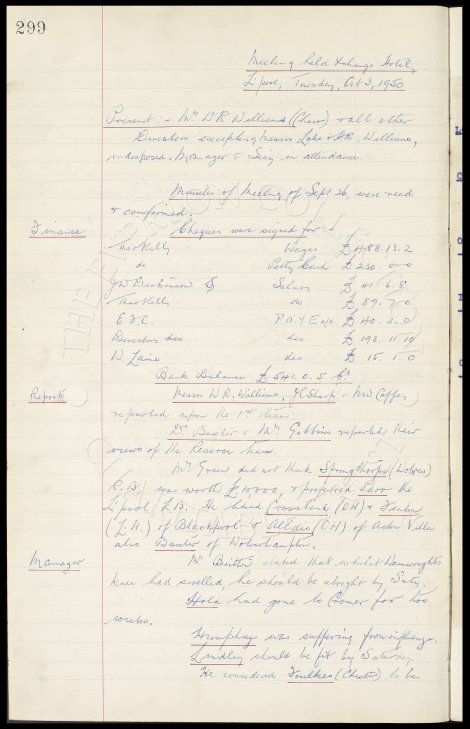 299
Meeting held Xchange Hotel,
L'pool, Tuesday, Oct 3, 1950
Present :- Mr W R Williams (Chair) & all other
Directors excepting Messrs Lake & H.R. Williams,
indisposed. Manager & Secy in attendance.
Minutes of Meeting of Sept 26, were read
& confirmed.
Finance Cheques were signed for :-
Theo Kelly Wages £ 488.13.2
do Petty Cash £ 230.0.0
Salary £ 41.6.8
Theo Kelly do £ 89.7.0
E.F.C. P.A.Y.E a/c £ 40.3.0
Directors do £ 198.11.10
W. Laine do £ 15.1.0
Bank Balance £ 541.0.5
Reports Messrs W.R. Williams, J C Sharp & Mr Coffey
reported upon the 1st team.
Dr Baxter & Mr Gibbins reported their
views of the Reserve team.
Mr Green did not think Springthorpe (Wolves)
R.B. was worth £10,000, & preferred the
L'pool L.B. He liked Crossland (CH) & Fenton
(L.H.) of Blackpool & (CH) of Aston Villa
also Baxter of Wolverhampton.
Manager Mr Britton stated that whilst Wainwrights
knee had swelled, he should be alright by Saty.
Hold had gone to Cromer for two
weeks.
Humphreys was suffering from influenza.
Lindley should be fit by Saturday.
He considered Foulkes (Chester) to be